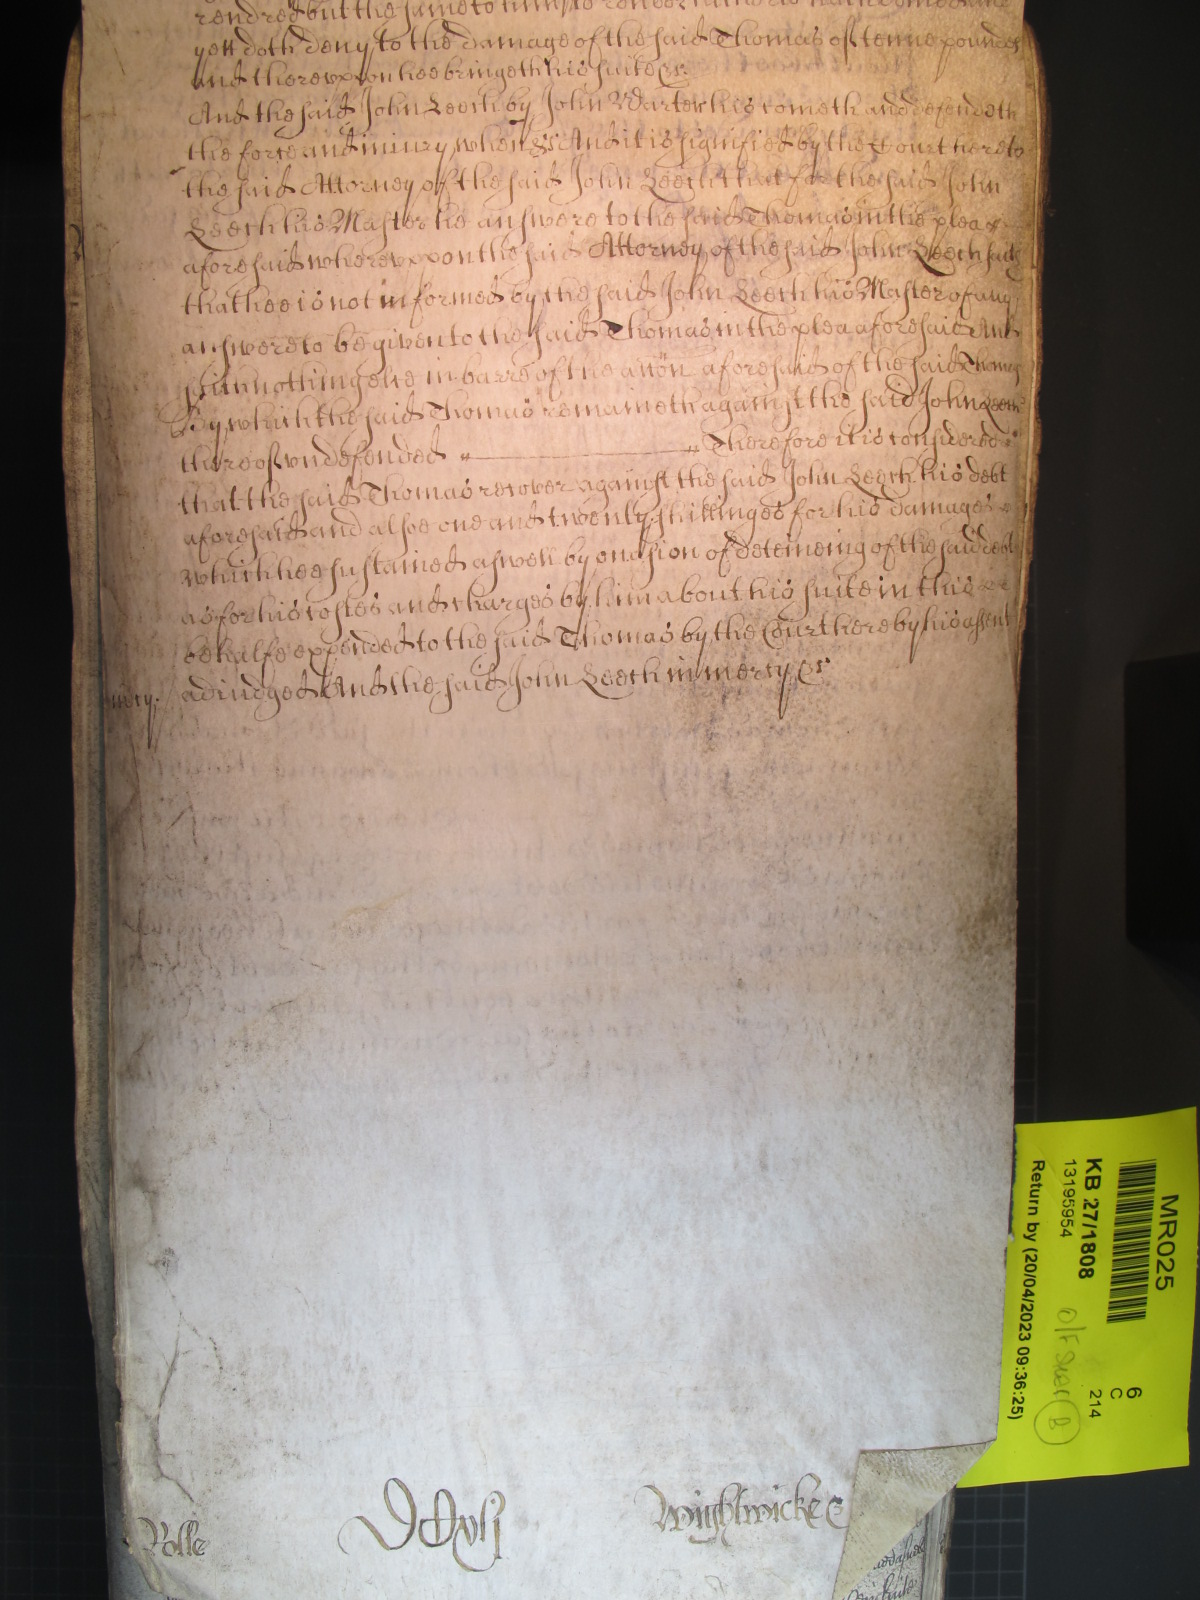 rendred but the same to him to render
yett doth deny to the damage of the said Thomas of tenne poundes
And therevppon hee bringeth his suite &c
And the said John Leech by John Warter his cometh and defendeth
the force and iniury when &c And it is signified by the Court here to
the said Attorney of the said John Leech that for the said John
Leech his Master he answere to the said Thomas in the plea
aforesaid wherevppon the said Attorney of the said John Leech saith
that hee is not informed by the said John Leech his Master of any
answere to be given to the said Thomas in the plea aforesaid And
nothing else in barre of the accon aforesaid of the said Thomas
By which the said Thomas remaineth against the said John Leech
thereof vndefended Therefore it is considered
that the said Thomas recover against the said John Leech his debt
aforesaid and alsoe one and twenty shillinges for his damages
which hee sustained aswell by occasion of deteineing of the said debt
as for his costes and charges by him about his suite in this
behalfe expended to the said Thomas by the Court here by his assent
adiudged And the said John Leech in mercy &c
mercy.
Rolle
Wightwicke
MR025
KB 27/1808
13195954
Return by (20/04/2023 09:36:25)
6
C
214
B